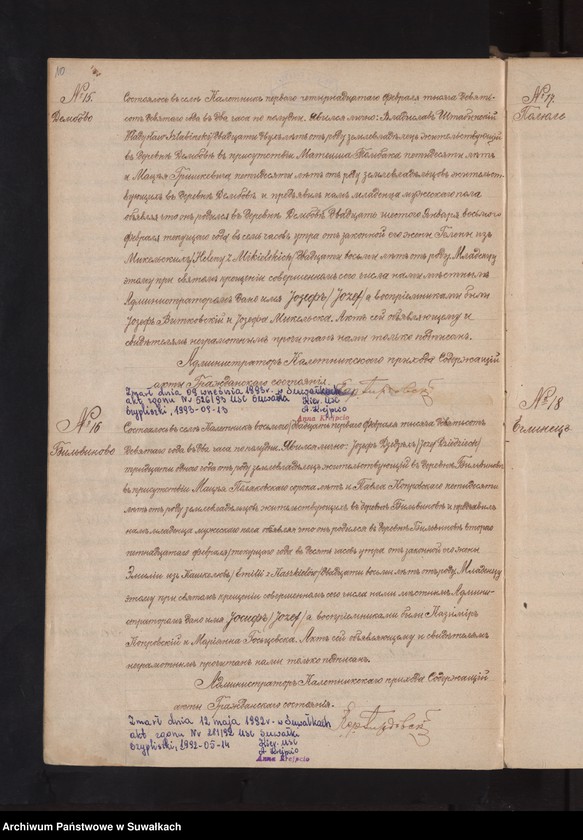 110
№15.
Дембово
Состоялось въ селѣ Калетникъ первого четырнадцатаго февраля тысяча девять-
сотъ девятаго года въ два часа по полудни. Явился лично: Владиславъ Штабинскій
Władysław Sztabiński двадцати двухъ лѣтъ отъ роду земледѣлецъ жительствующій
въ деревнѣ Дембовѣ въ присутствіи Матеуша пятидесяти лѣтъ
и Мацѣя Гришкевича пятидесяти лѣтъ отъ роду земледѣльцовъ жительст-
вующихъ въ деревнѣ Дембовѣ и предъявилъ намъ младенца мужескаго пола
объявляя что онъ родился въ деревнѣ Дембовѣ двадцать шестого Января восьмого
февраля текущаго года въ семь часовъ утра отъ законной его жены Гелены изъ
/Heleny z Mikielskich/ двадцати восьми лѣтъ отъ роду. Младенцу
этому при святомъ крещеніи совершенномъ сего числа нами мѣстнымъ
Администраторомъ дано имя Іозефъ /Józef/ а воспріемниками были
Іозефъ Витковскій и Іозефа Микельска. Актъ сей объявляющему и
свидѣтелямъ неграмотнымъ прочитанъ нами только подписанъ.
Администраторъ Калетникскаго прихода Содержащій
акты Гражданскаго состоянія.
Zmarł dnia 09 września 1993r. w Suwałkach
akt zgonu nr 526/93 USC Suwałki
Szypliszki, 1993-09-13
Kier. USC
A. Krejpcio
Anna Krejpcio
№16
Бильвиново
Состоялось въ селѣ Калетникъ восьмого /двадцать перваго февраля тысяча девятьсотъ
девятаго года въ два часа по полудни. Явился лично: Іозефъ /Józef
тридцати одного года отъ роду земледѣлецъ жительствующій въ деревнѣ Бильвиновѣ
въ присутствіи Мацѣя сорока лѣтъ и Павла Копровскаго пятидесяти
лѣтъ отъ роду земледѣльцовъ жительствующихъ въ деревнѣ Бильвиновѣ и предъявилъ
намъ младенца мужескаго пола объявляя что онъ родился въ деревнѣ Бильвиновѣ второго
пятнадцатаго февраля /текущаго года въ десять часовъ утра отъ законной его жены
Эмиліи изъ /Emilii z двадцати восьми лѣтъ отъ роду. Младенцу
этому при святомъ крещеніи совершенномъ сего числа нами мѣстнымъ Админи-
страторомъ дано имя Іосифъ /Józef/ а воспріемниками были Казиміръ
Копровскій и Маріянна Актъ сей объявляющему и свидѣтелямъ
неграмотнымъ прочитанъ нами только подписанъ.
Администраторъ Калетникскаго прихода Содержащій
акты Гражданскаго состоянія.
Zmarł dnia 12 maja 1992r. w Suwałkach
akt zgonu Nr 211/92 USC Suwałki
Szypliszki, 1992-05-14
Kier. USC
A. Krejpcio
Anna Krejpcio
№17.
№18
Archiwum Państwowe w Suwałkach